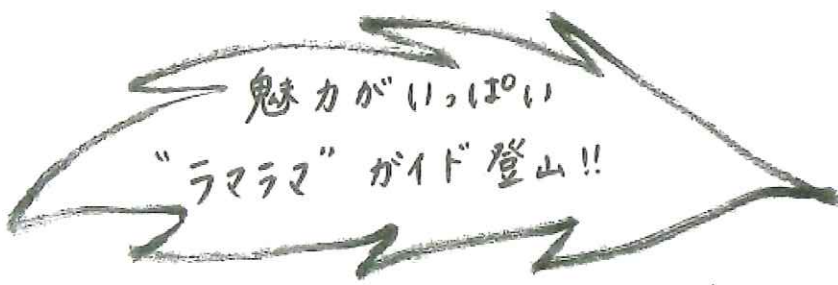 魅力がいっぱい
"ラマラマ" ガイド登山!!